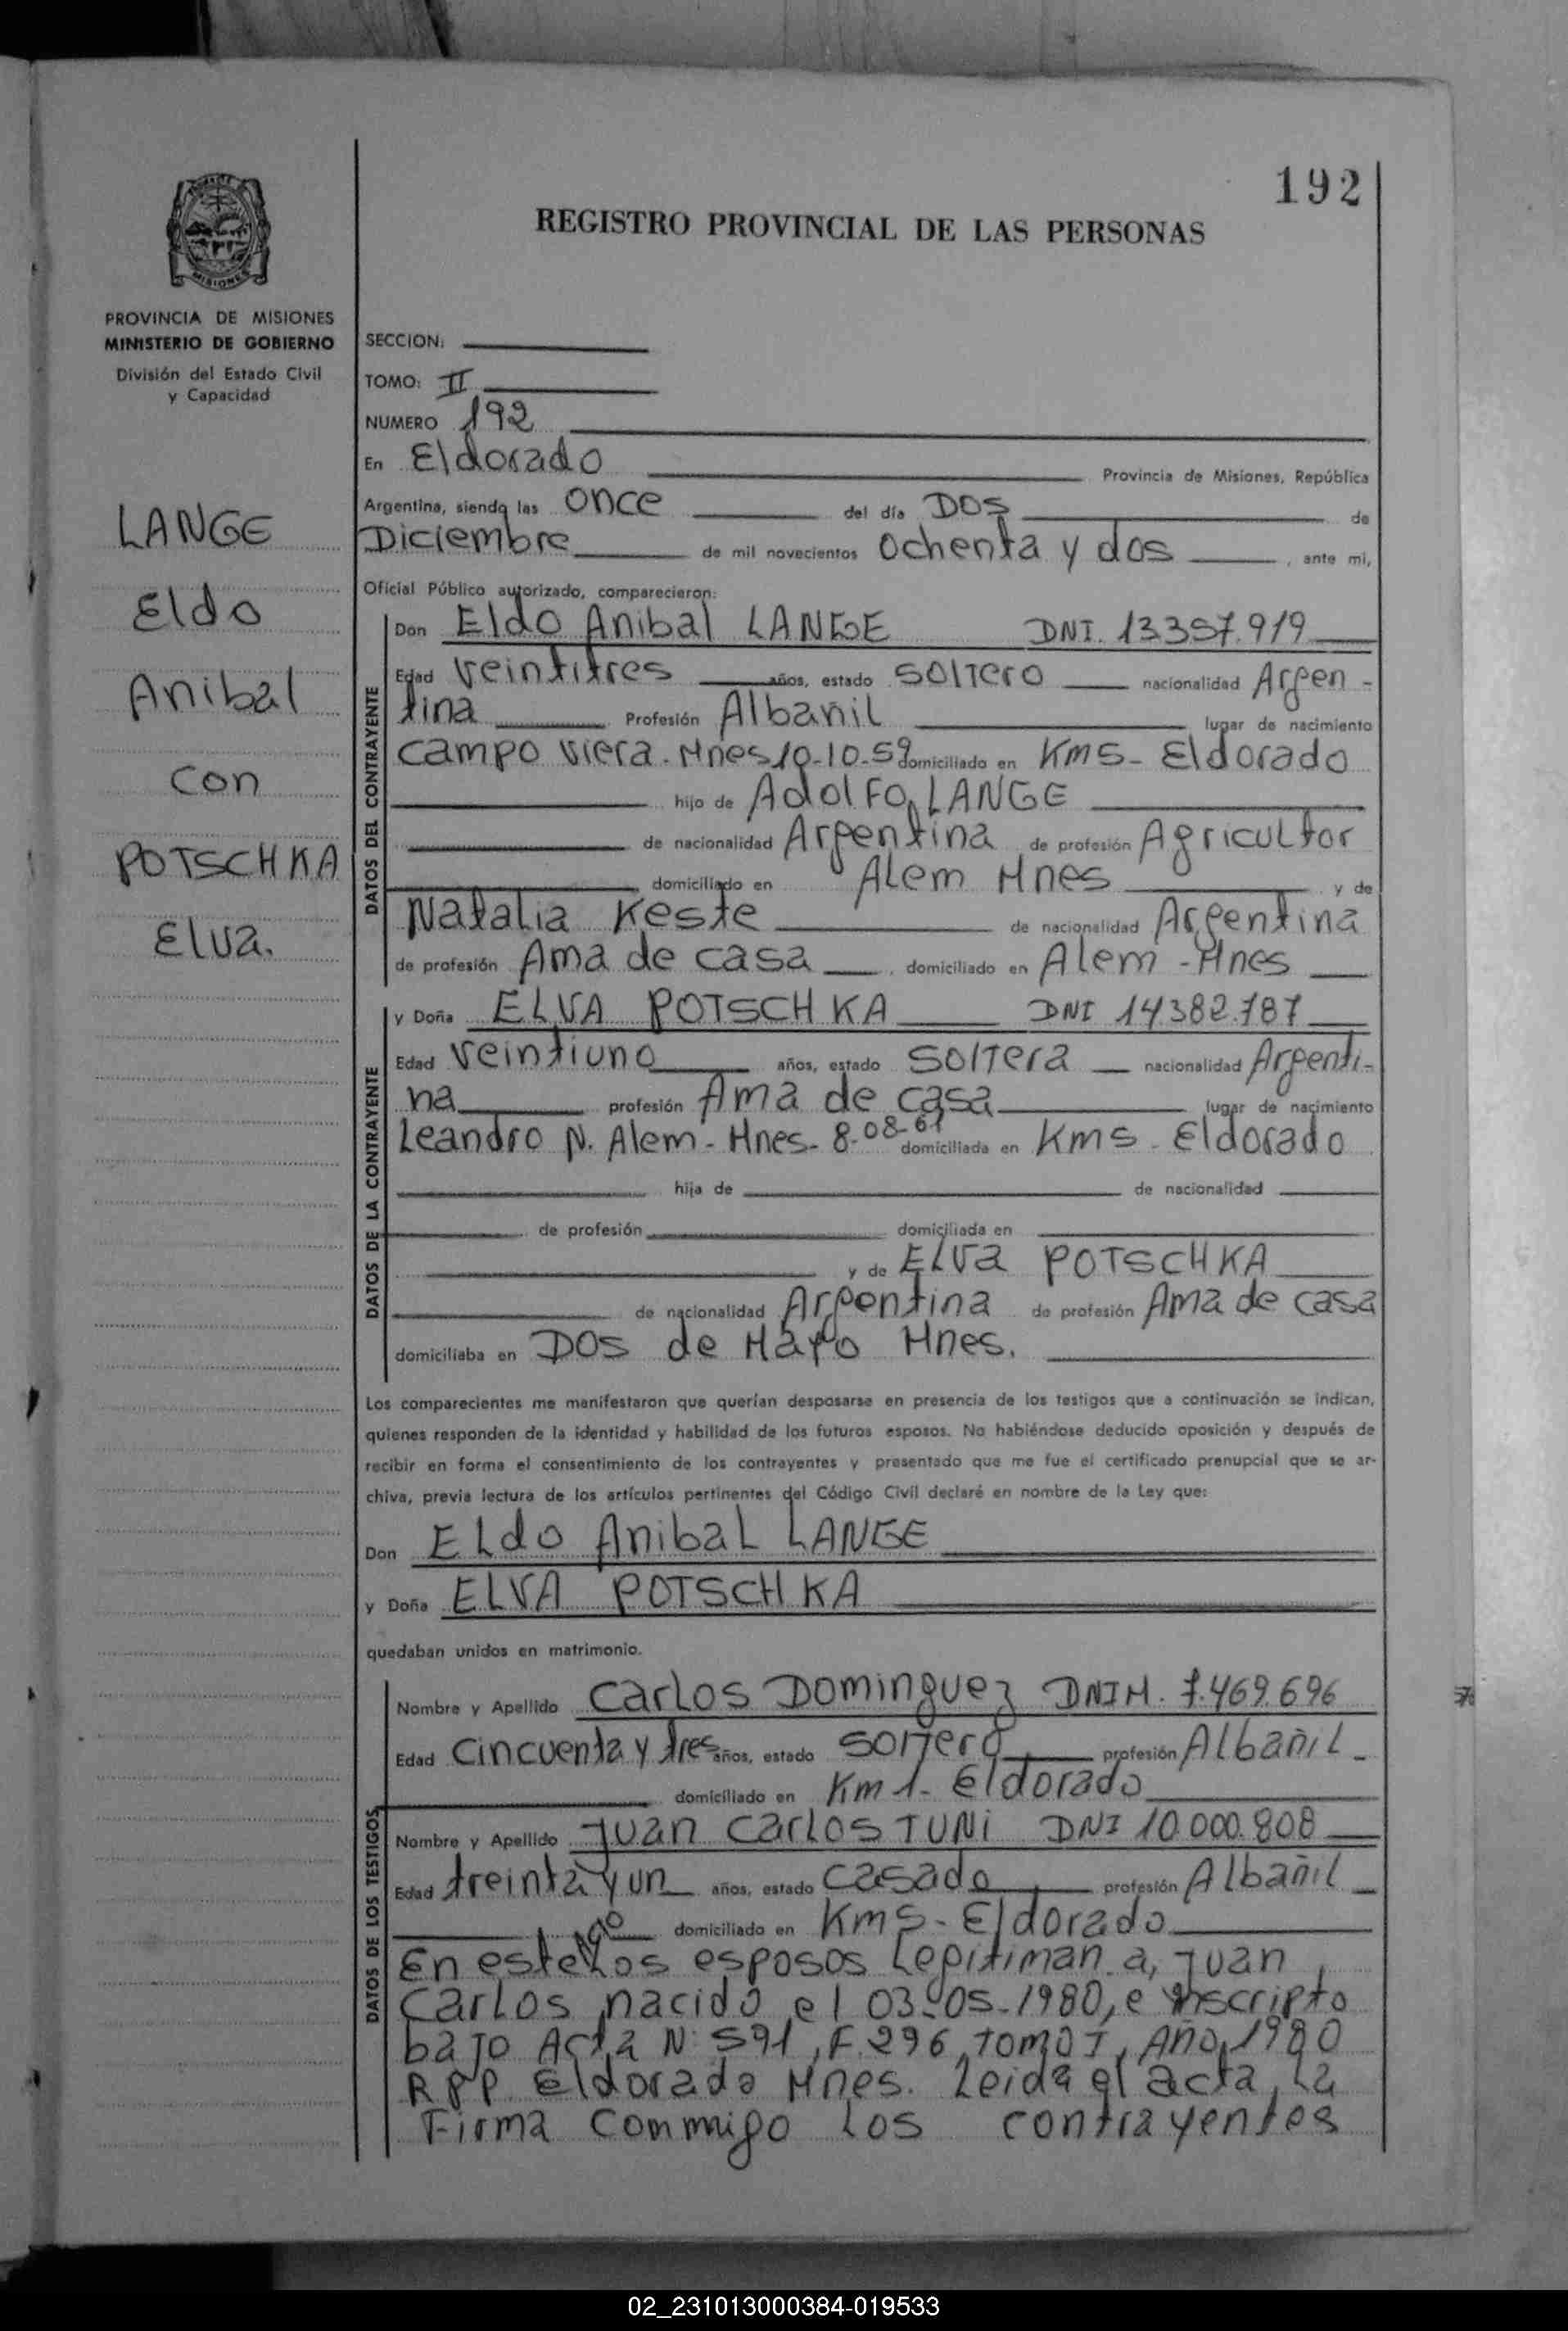 192
REGISTRO PROVINCIAL DE LAS PERSONAS
MISIONES
PROVINCIA DE MISIONES
MINISTERIO DE GOBIERNO
División del Estado Civil
y Capacidad
LANGE
Eldo
Anibal
con
POTSCHKA
Elva.
SECCION:
TOMO: II
NUMERO 192
En Eldorado Provincia de Misiones, República
Argentina, siendo las once del día Dos de
Diciembre de mil novecientos ochenta y dos, ante mi,
Oficial Público autorizado, comparecieron:
DATOS DEL CONTRAYENTE
Don Eldo Anibal LANGE DNI. 13.357.919
Edad veintitres años, estado soltero nacionalidad Argen-
tina Profesión Albañil lugar de nacimiento
campo viera. Mnes 10-10-59 domiciliado en Km5- Eldorado
hijo de Adolfo LANGE
de nacionalidad Argentina de profesión Agricultor
domiciliado en Alem Mnes y de
Natalia Keste de nacionalidad Argentina
de profesión Ama de casa, domiciliado en Alem - Mnes
DATOS DE LA CONTRAYENTE
y Doña ELVA POTSCHKA DNI 14.382.787
Edad veintiuno años, estado soltera nacionalidad Argenti-
na profesión Ama de casa lugar de nacimiento
Leandro N. Alem - Mnes- 8-08-61 domiciliada en Km5 - Eldorado
hija de de nacionalidad
de profesión domiciliada en
y de Elva POTSCHKA
de nacionalidad Argentina de profesión Ama de casa
domiciliaba en Dos de Mayo Mnes.
Los comparecientes me manifestaron que querían desposarse en presencia de los testigos que a continuación se indican,
quienes responden de la identidad y habilidad de los futuros esposos. No habiéndose deducido oposición y después de
recibir en forma el consentimiento de los contrayentes y presentado que me fue el certificado prenupcial que se ar-
chiva, previa lectura de los artículos pertinentes del Código Civil declaré en nombre de la Ley que:
Don Eldo Anibal LANGE
y Doña ELVA POTSCHKA
quedaban unidos en matrimonio.
DATOS DE LOS TESTIGOS
Nombre y Apellido Carlos Dominguez DNIM. 7.469.696
Edad Cincuenta y tres años, estado soltero profesión Albañil
domiciliado en Km 1- Eldorado
Nombre y Apellido Juan Carlos TUNI DNI 10.000.808
Edad treinta y un años, estado casado profesión Albañil
domiciliado en Km5- Eldorado
En este los esposos Legitiman a, Juan
Carlos nacido el 03-05-1980, e inscripto
bajo Acta N: 591, F. 296, tomo I, Año 1980
RPP Eldorado Mnes. Leida el acta, La
Firma conmigo los contrayentes
02_231013000384-019533